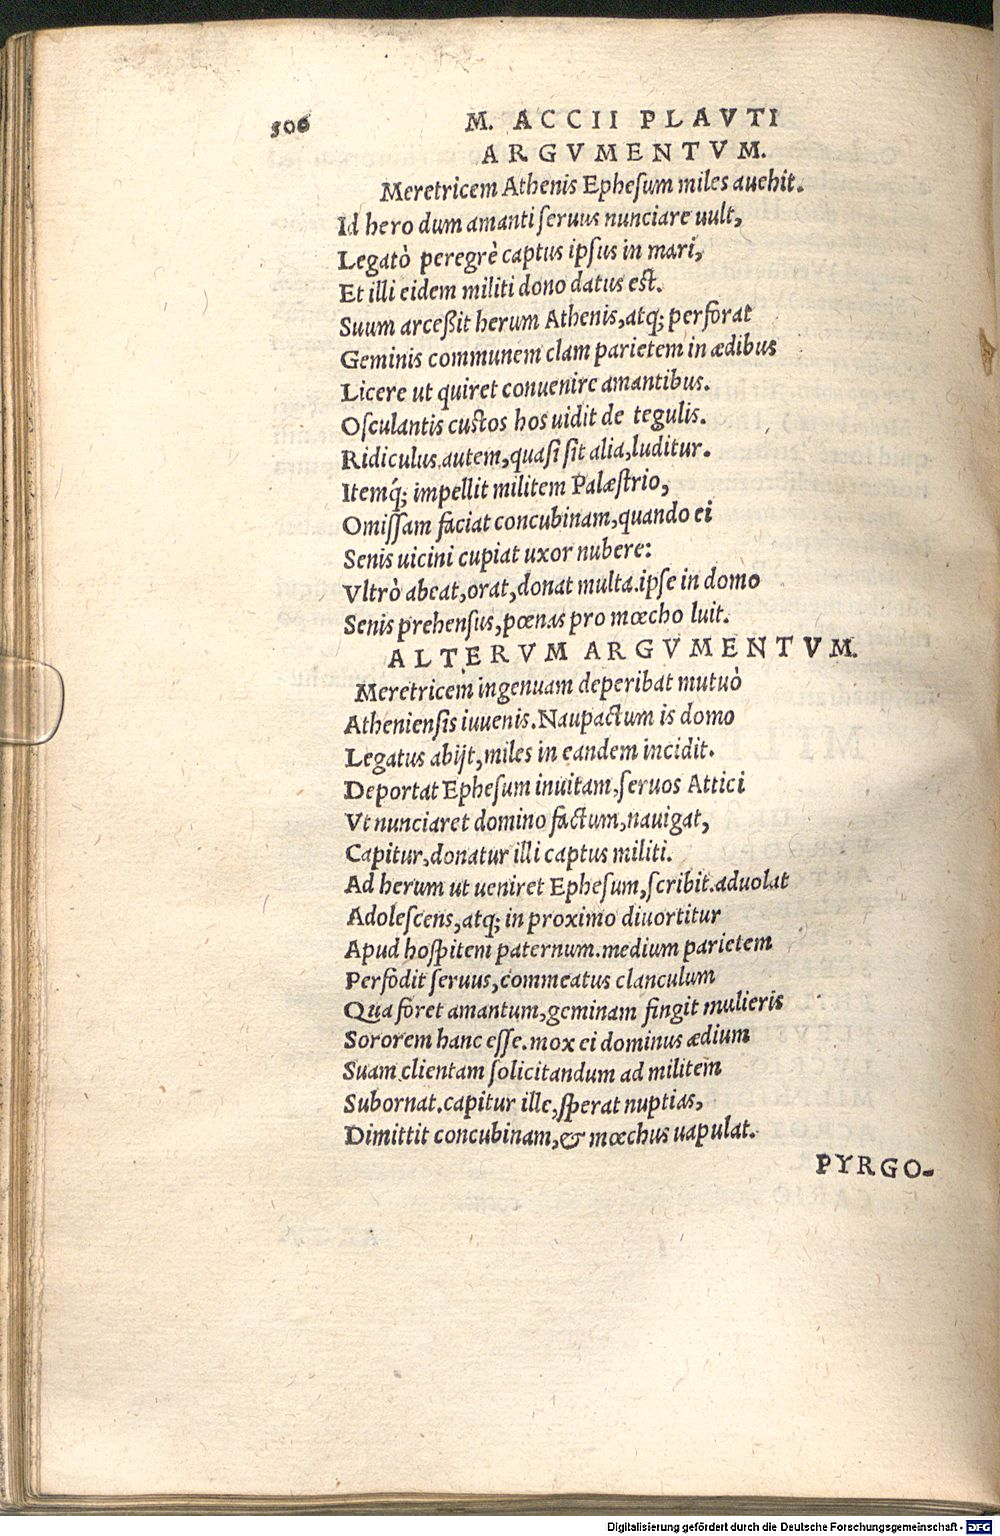 506 M. ACCII PLAVTI
ARGVMENTVM.
Meretricem Athenis Ephesum miles auehit.
Id hero dum amanti seruus nunciare uult,
Legatò peregrè captus ipsus in mari,
Et illi eidem militi dono datus est.
Suum arceßit herum Athenis, atq; perforat
Geminis communem clam parietem in ædibus
Licere ut quiret conuenire amantibus.
Osculantis custos hos uidit de tegulis.
Ridiculus autem, quasi sit alia, luditur.
Itemq́; impellit militem Palæstrio,
Omissam faciat concubinam, quando ei
Senis uicini cupiat uxor nubere:
Vltrò abeat, orat, donat multa. ipse in domo
Senis prehensus, pœnas pro mœcho luit.
ALTERVM ARGVMENTVM.
Meretricem ingenuam deperibat mutuò
Atheniensis iuuenis. Naupactum is domo
Legatus abijt, miles in eandem incidit.
Deportat Ephesum inuitam, seruos Attici
Vt nunciaret domino factum, nauigat,
Capitur, donatur illi captus militi.
Ad herum ut ueniret Ephesum, scribit. aduolat
Adolescens, atq; in proximo diuortitur
Apud hospitem paternum. medium parietem
Perfodit seruus, commeatus clanculum
Qua foret amantum, geminam fingit mulieris
Sororem hanc esse. mox ei dominus ædium
Suam clientam solicitandum ad militem
Subornat. capitur ille, sperat nuptias,
Dimittit concubinam, & mœchus uapulat.
PYRGO-
Digitalisierung gefördert durch die Deutsche Forschungsgemeinschaft - DFG